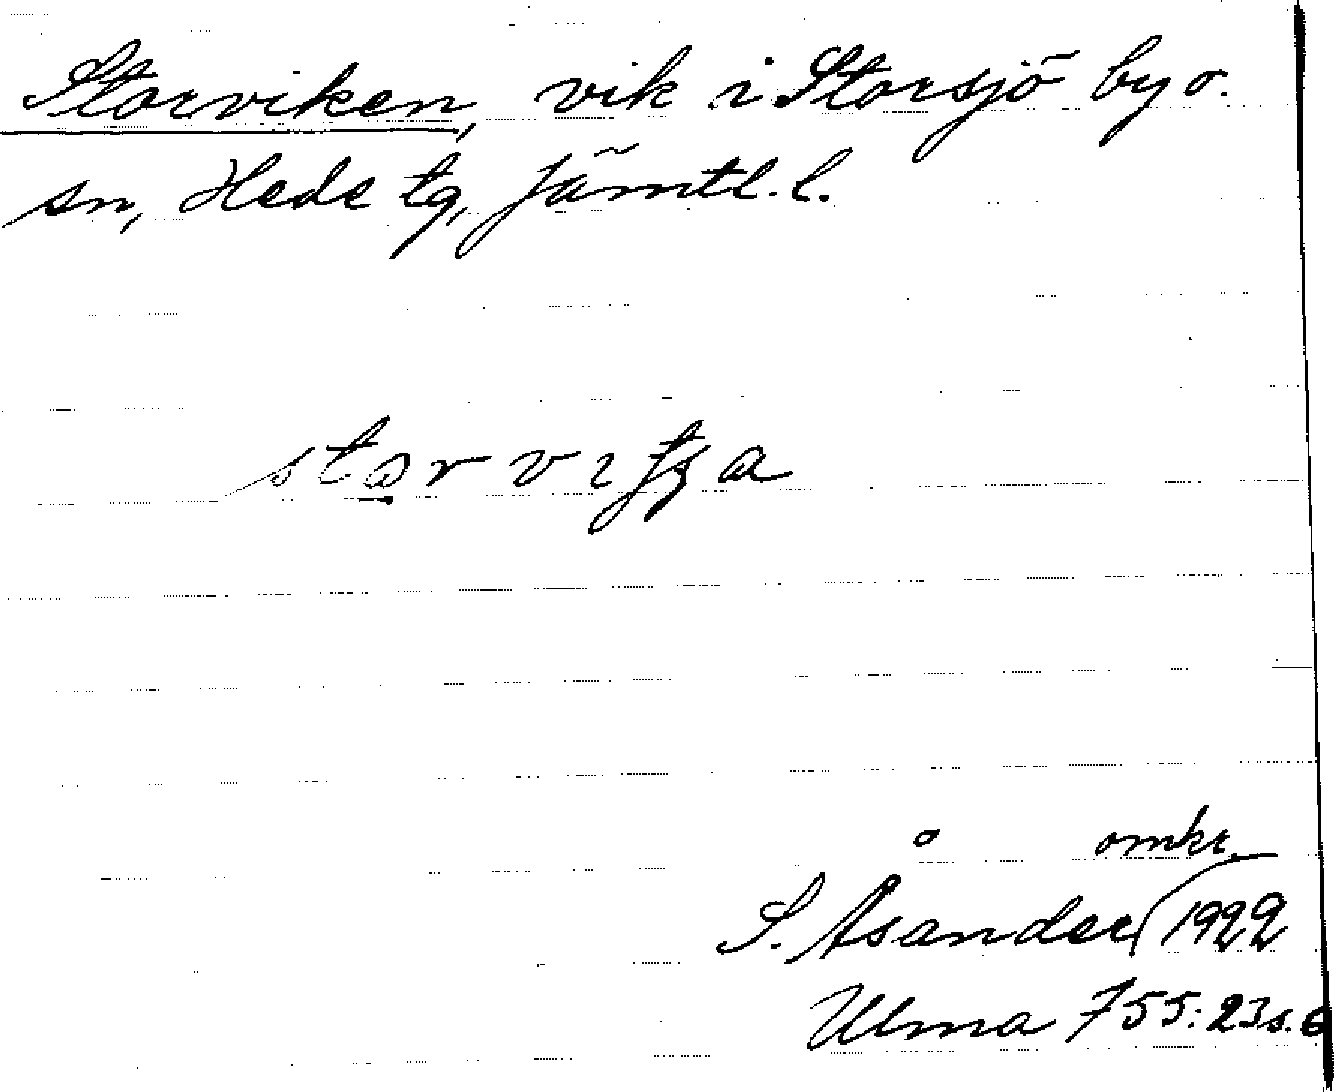 Storviken, vik i Storsjö by o.
sn, Heds tg, Jämtl. l.
omkr.
S. Åsander 1922
Ulma 755: 23 s. 6